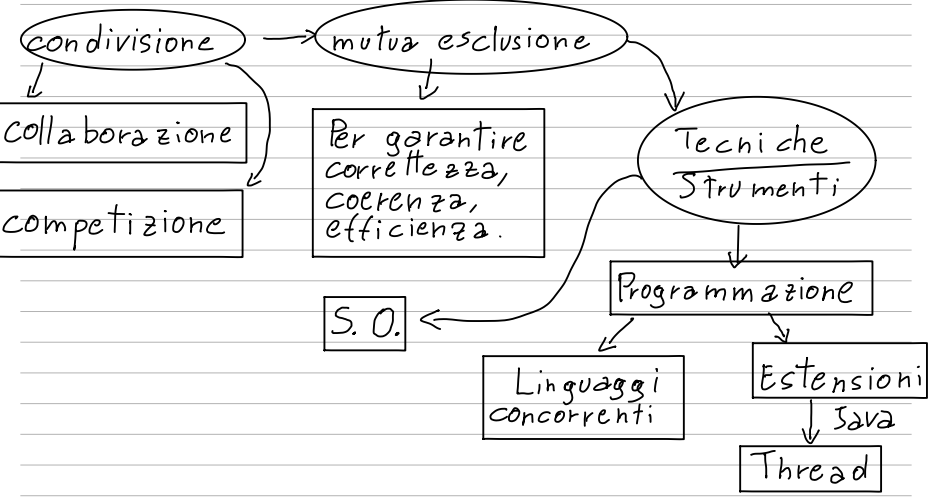 condivisione
mutua esclusione
collaborazione
competizione
Per garantire
correttezza,
coerenza,
efficienza.
Tecniche
Strumenti
S. O.
Programmazione
Linguaggi
concorrenti
Estensioni
Java
Thread